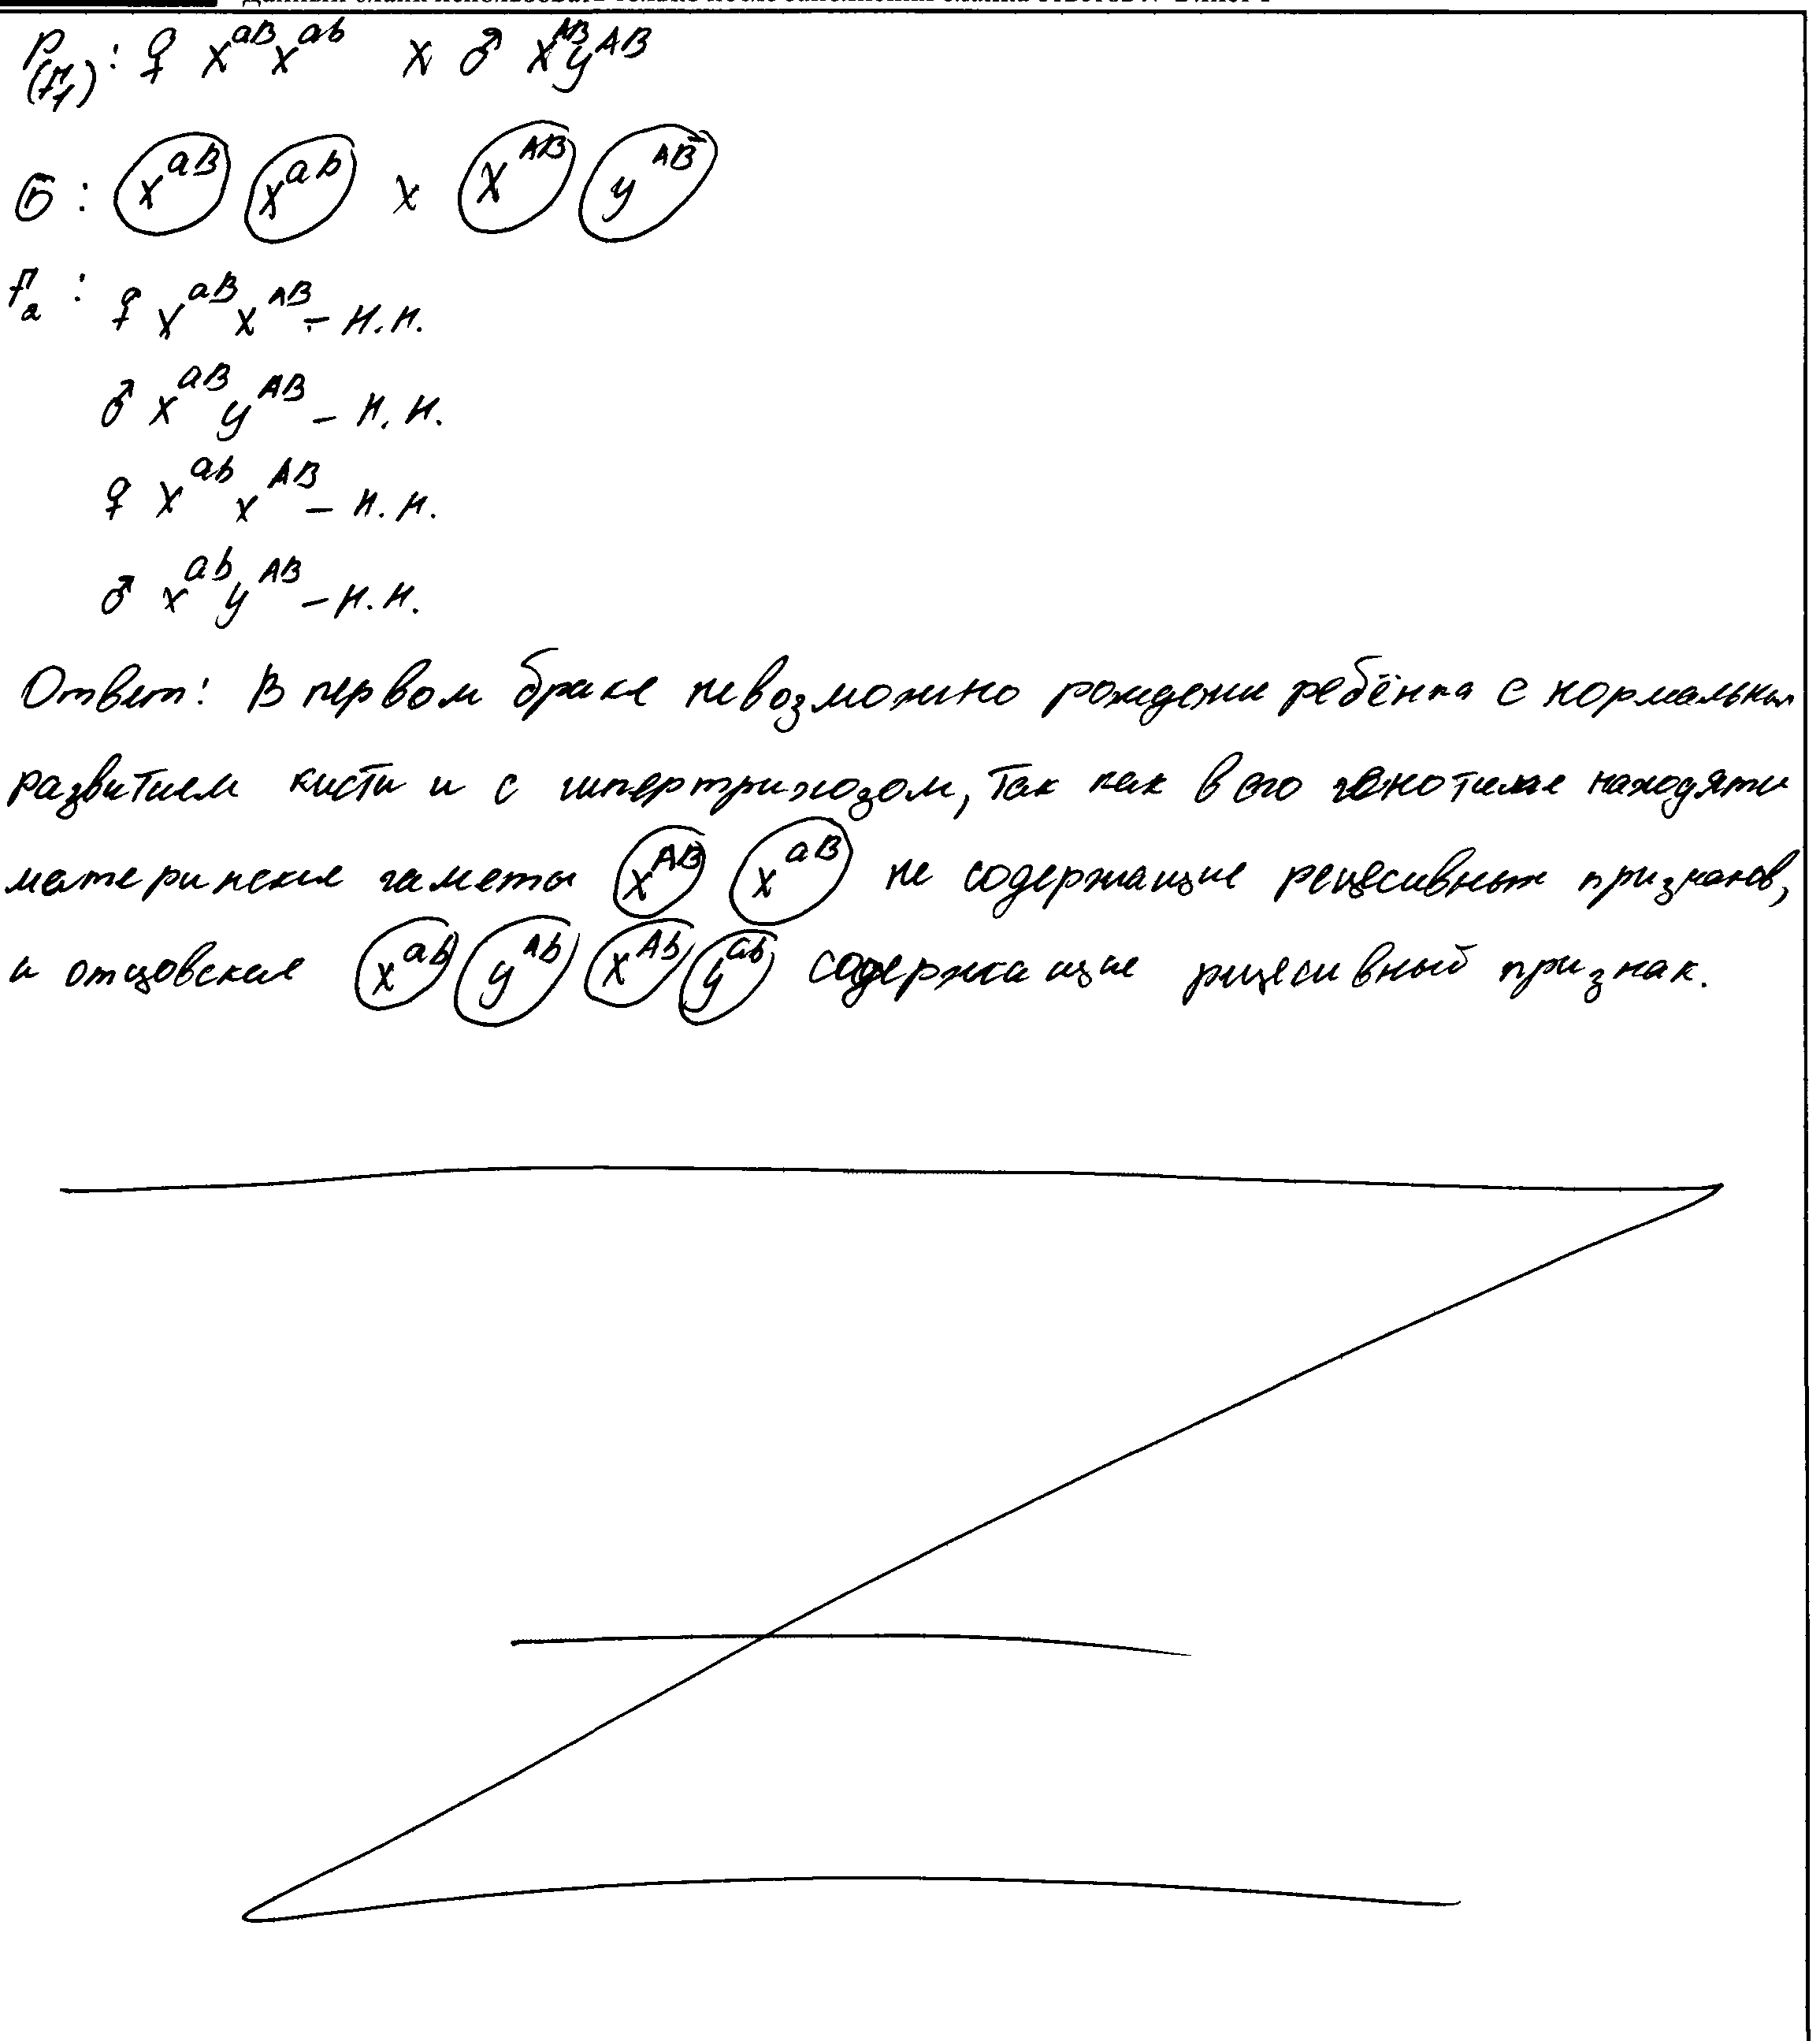 P : ♀ X^aB X^ab х ♂ X^AB У^AB
(F1)
G : X^aB X^ab х X^AB У^AB
F2 : ♀ X^aB X^AB – н.н.
♂ X^aB У^AB – н.н.
♀ X^ab X^AB – н.н.
♂ X^ab У^AB – н.н.
Ответ: В первом браке невозможно рождени ребёнка с нормальным
развитием кисти и с гипертрихозом, так как в его генотипе находятся
материнские гаметы X^AB X^aB не содержащие рецесивных признаков,
и отцовские X^ab У^Ab X^Ab У^ab содержащие рицесивный признак.